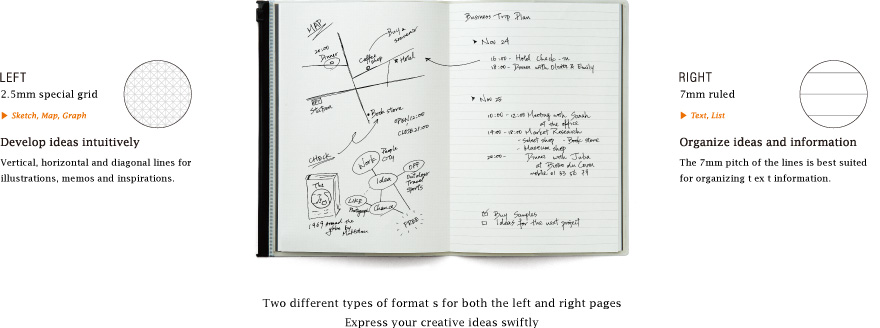 LEFT
2.5mm special grid
Sketch, Map, Graph
Develop ideas intuitively
Vertical, horizontal and diagonal lines for
illustrations, memos and inspirations.
MAP
20:00
Dinner
Coffee
shop
Buy a
souvenir
Hotel
Station
Book store
OPEN 12:00
CLOSE 21:00
CHECK
Work
People
City
OFF
Outdoor
Travel
Sports
Idea
LIKE
Photograph
Chance
FREE
The
1969 around the
globe by
Business Trip Plan
Nov 24
16:00 - Hotel Check - in
18:00 - Dinner with & Emily
Nov 25
10:00 - 12:00 Meeting with Sarah
at the office
14:00 - 18:00 Market Research
- select shop - Book store
- Museum shop
20:00 - Dinner with Julia
at
mobile 01 53 56 29
Buy Samples
Ideas for the next project
RIGHT
7mm ruled
Text, List
Organize ideas and information
The 7mm pitch of the lines is best suited
for organizing t ex t information.
Two different types of format s for both the left and right pages
Express your creative ideas swiftly